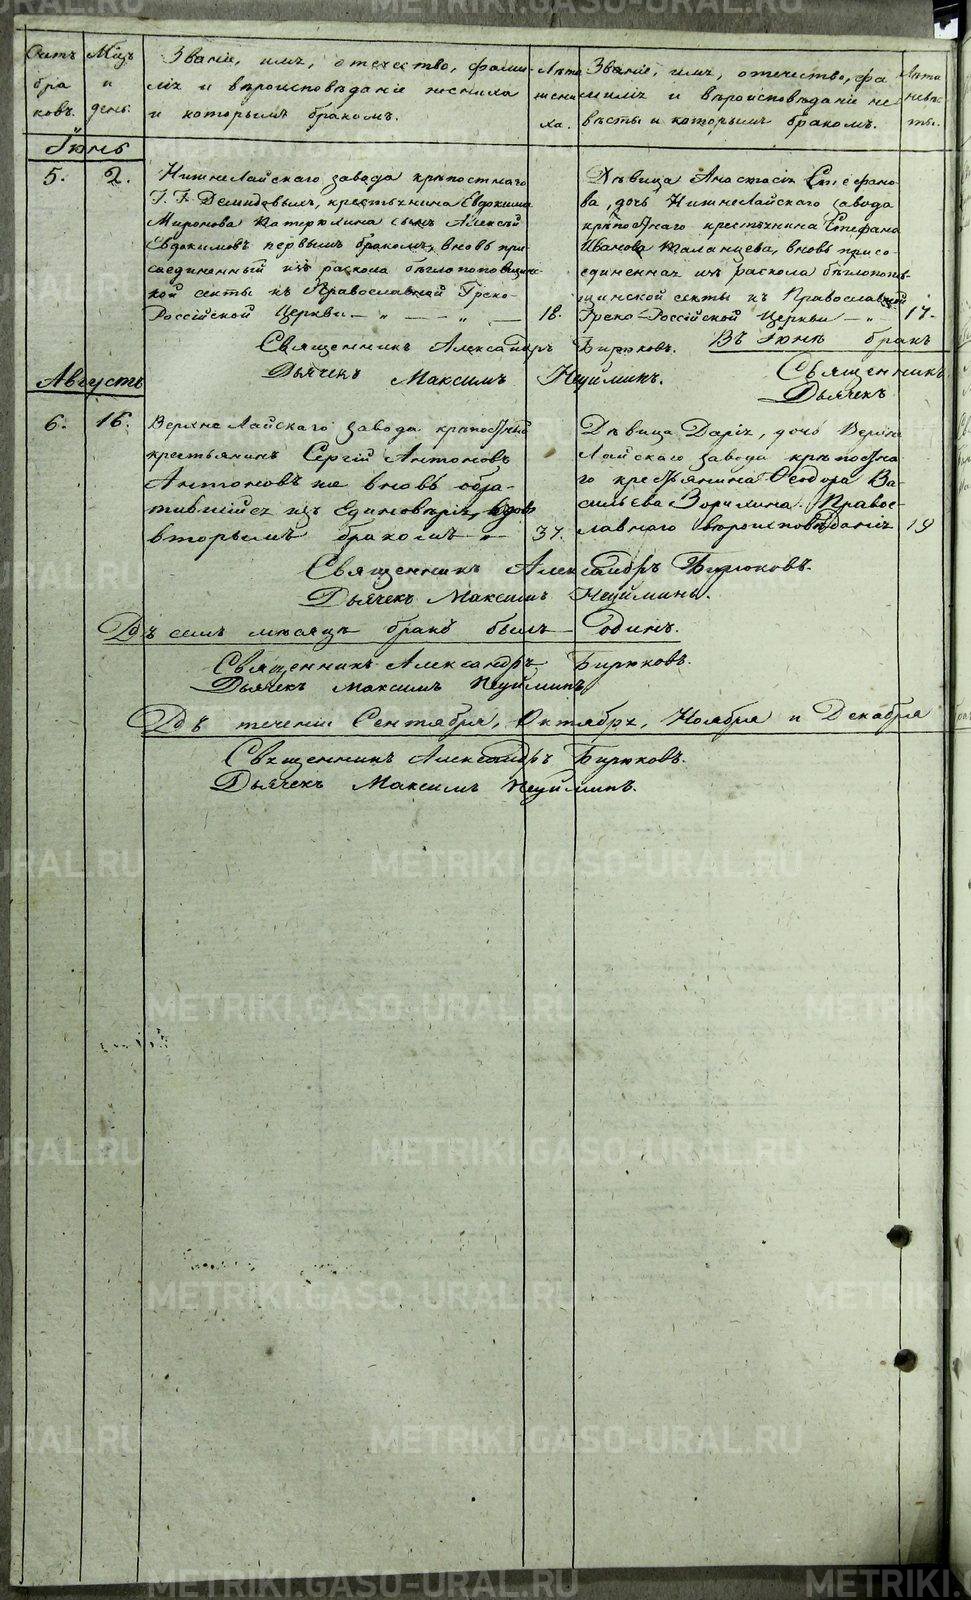 Счетъ бра ковъ.
Мцъ и день.
Званіе, имя, отечество, фами-
лія и вѣроисповѣданіе жениха
и которымъ бракомъ.
Лѣта жени ха.
Званіе, имя, отечество, фа
милія и вѣроисповѣданіе не
вѣсты и которымъ бракомъ.
Лѣта невѣс ты.
Іюнь
5. 2.
НижнеЛайскаго завода крѣпостнаго
Г. Г. Демидовыхъ, крестьянина Евдокима
Миронова сынъ Алексѣй
Евдокимовъ первымъ бракомъ, вновь при
соединенный изъ раскола бѣглопоповщин
кой секты къ Православной Греко-
Россійской Церкви — „ — — „ —
18.
Дѣвица Анастасія Стефано
ва, дочь НижнеЛайскаго завода
крѣпостнаго крестьянина Стефана
Иванова Каланцева, вновь присо-
единенная изъ раскола бѣглопопов-
щинской секты къ Православной
Греко-Россійской Церкви — „ —
17.
Священникъ Александръ Бирюковъ.
Дьячекъ Максимъ Неуйминъ.
Въ Іюнѣ бракъ
Священникъ
Дьячекъ
Августъ
6. 16.
ВерхнеЛайскаго завода крѣпостный
крестьянинъ Сергій Антоновъ
Антоновъ же вновь обра-
тившійся изъ Единовѣрія, вдовъ
вторымъ бракомъ — „ —
37.
Дѣвица Дарія, дочь Верхне
Лайскаго завода крѣпостна
го крестьянина Ѳеодора Ва-
сильева Зорихина. Правос-
лавнаго вѣроисповѣданія
19
Священникъ Александръ Бирюковъ.
Дьячекъ Максимъ Неуйминъ.
Въ семъ мѣсяцѣ бракъ былъ — Одинъ.
Священникъ Александръ Бирюковъ.
Дьячекъ Максимъ Неуйминъ
Въ теченіи Сентября, Октября, Ноября и Декабря
Священникъ Александръ Бирюковъ.
Дьячекъ Максимъ Неуйминъ.
METRIKI.GASO-URAL.RU